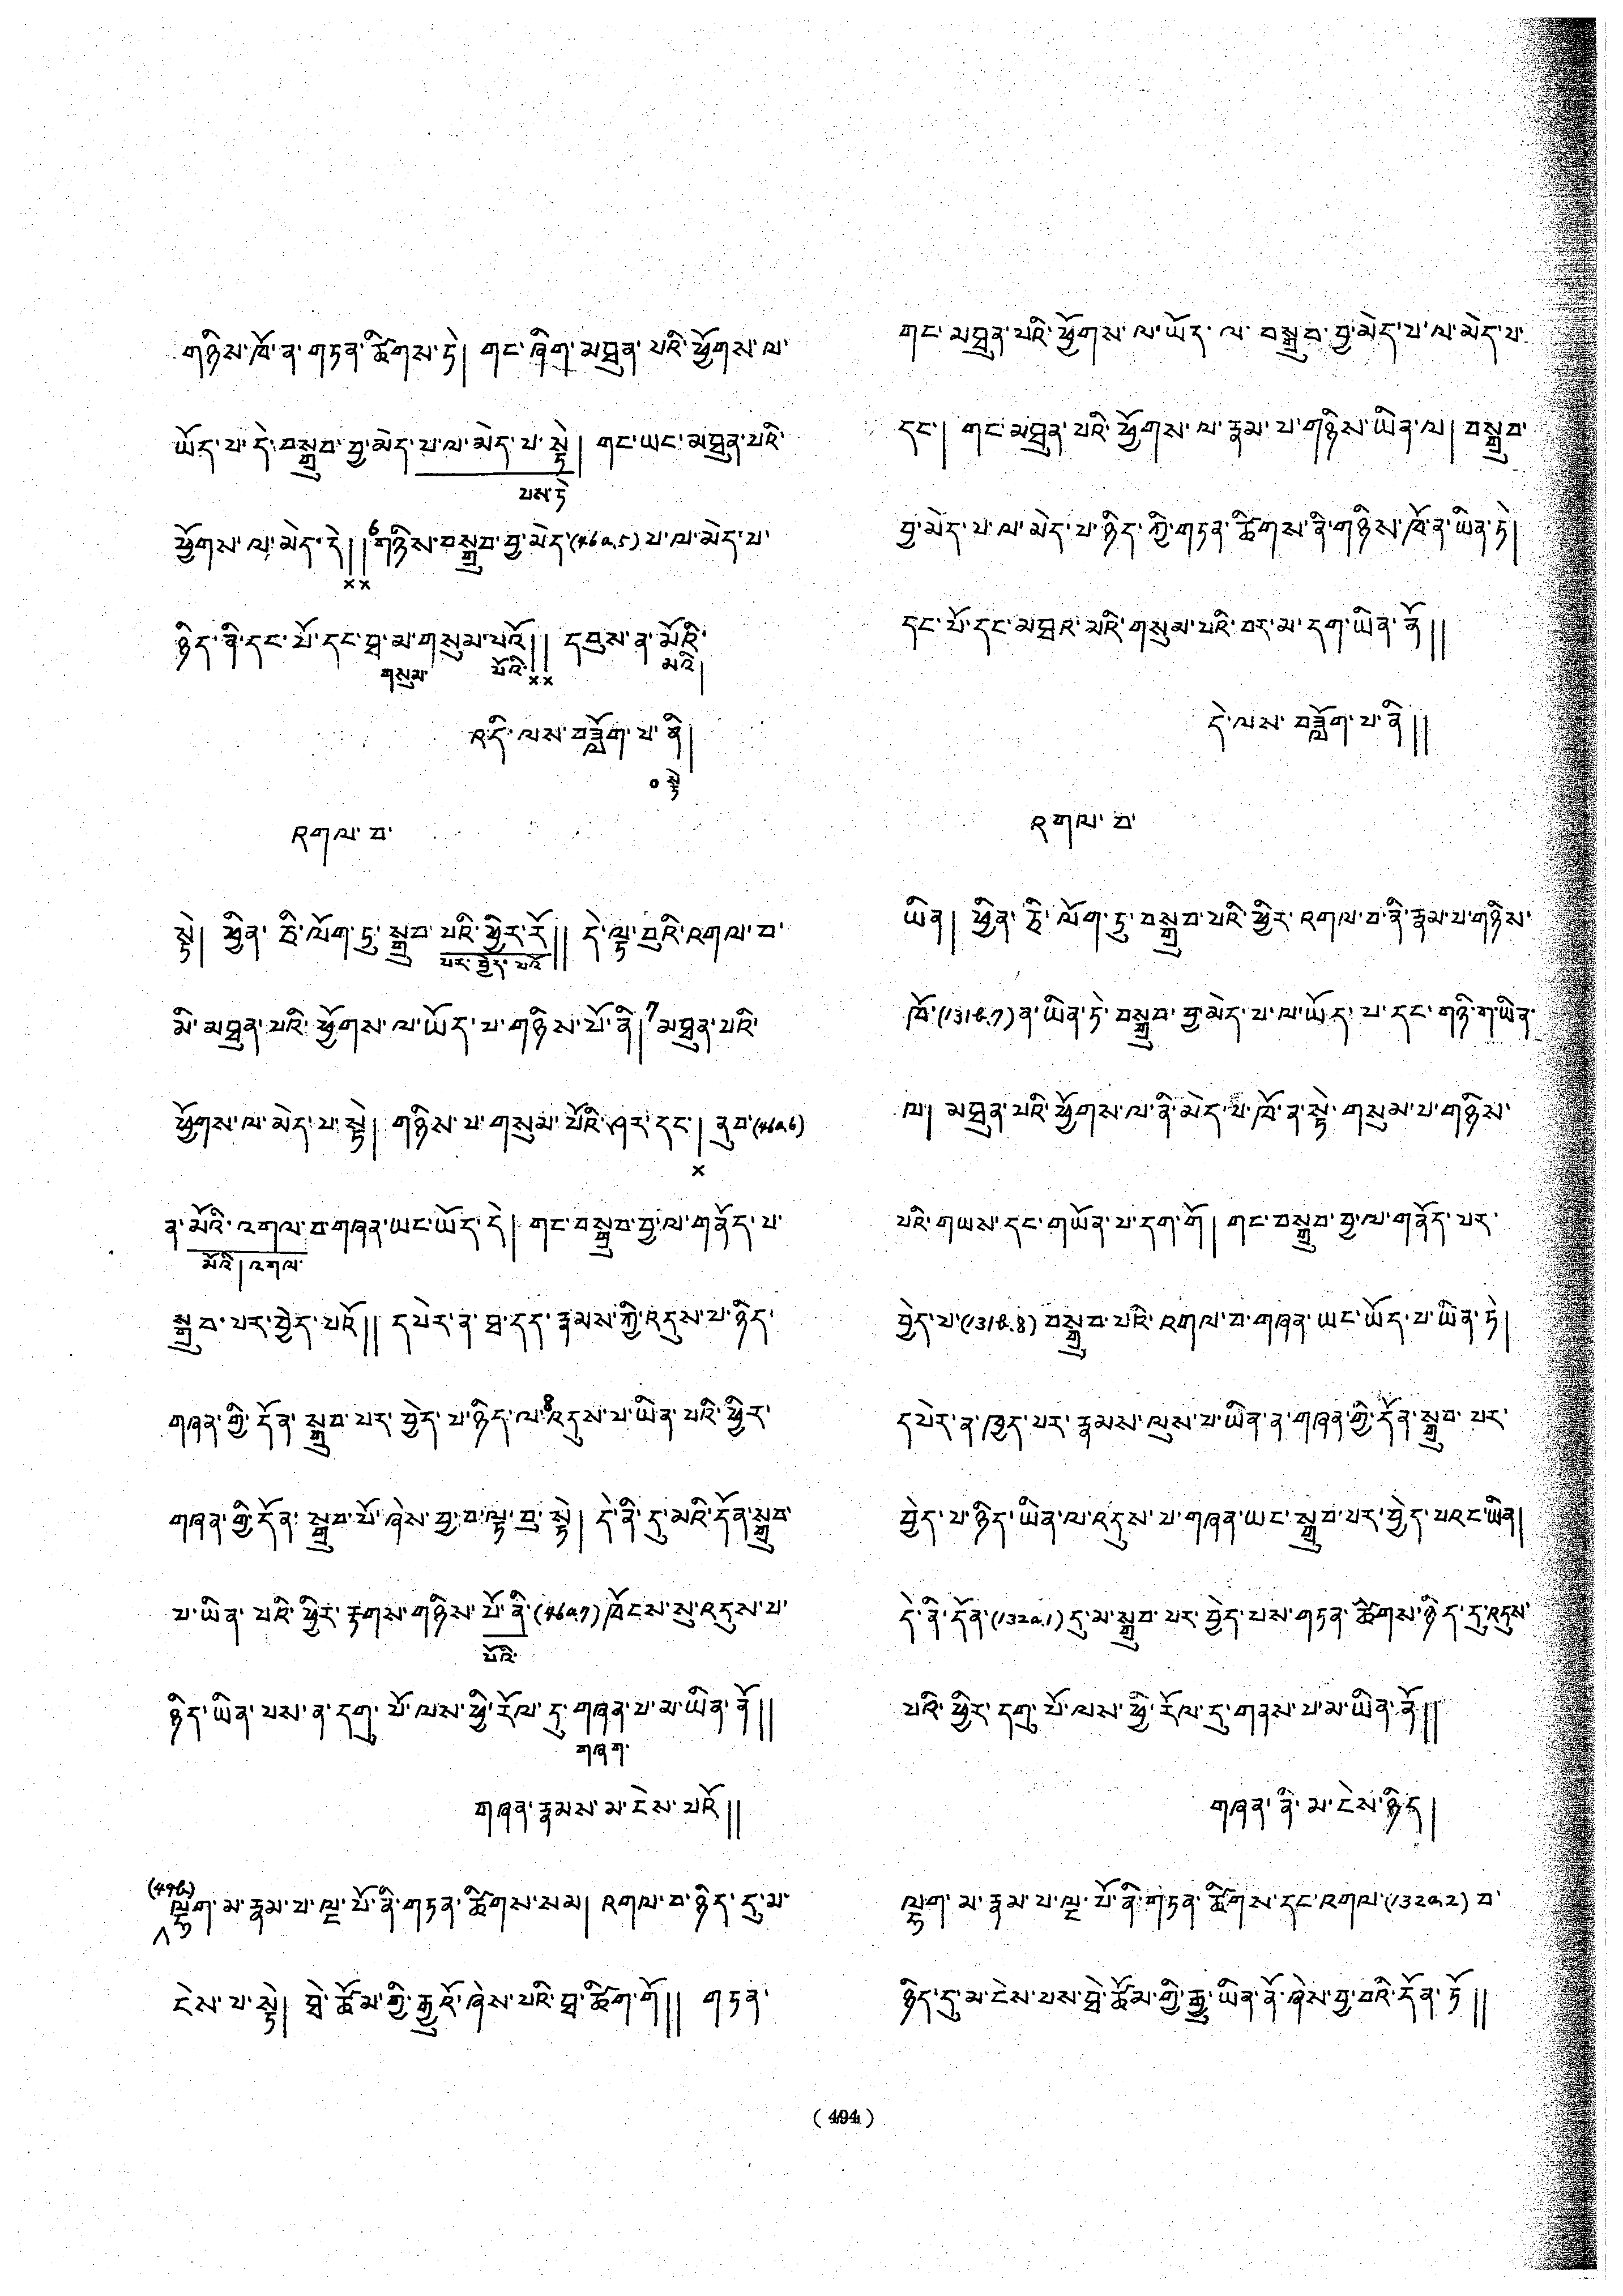 གཉིས་ཁོ་ན་གཏན་ཚིགས་ཏེ། གང་ཞིག་མཐུན་པའི་ཕྱོགས་ལ་
ཡོད་པ་དེ་བསྒྲུབ་བྱ་མེད་པ་ལ་མེད་པ་སྟེ། གང་ཡང་མཐུན་པའི་
པས་ཏེ
ཕྱོགས་ལ་མེད་དེ།། 6གཉིས་བསྒྲུབ་བྱ་མེད་(46a.5)པ་ལ་མེད་པ་
××
ཉིད་ནི་དང་པོ་དང་ཐ་མ་གསུམ་པའོ།། དབུས་ན་མོའི་
གསུམ་ པོའི་×× མའི།
འདི་ལས་བཟློག་པ་ནི།
༠སྟེ
འགལ་བ་
སྟེ། ཕྱིན་ཅི་ལོག་ཏུ་སྒྲུབ་པའི་ཕྱིར་རོ།། དེ་ལྟ་བུའི་འགལ་བ་
པར་བྱེད་པའོ
མི་མཐུན་པའི་ཕྱོགས་ལ་ཡོད་པ་གཉིས་པོ་ནི།7མཐུན་པའི་
ཕྱོགས་ལ་མེད་པ་སྟེ། གཉིས་པ་གསུམ་པོའི་ཤར་དང་། ནུབ་(46a6)
×
ན་མོའི་འགལ་བ་གཞན་ཡང་ཡོད་དེ། གང་བསྒྲུབ་བྱ་ལ་གནོད་པ་
མོའི།འགལ་
སྒྲུབ་པར་བྱེད་པའོ།། དཔེར་ན་ཐ་དད་རྣམས་ཀྱི་འདུས་པ་ཉིད་
གཞན་གྱི་དོན་སྒྲུབ་པར་བྱེད་པ་ཉིད་ལ་8འདུས་པ་ཡིན་པའི་ཕྱིར་
གཞན་གྱི་དོན་སྒྲུབ་པོ་ཞེས་བྱ་བ་ལྟ་བུ་སྟེ། དེ་ནི་དུ་མའི་དོན་སྒྲུབ་
པ་ཡིན་པའི་ཕྱིར་རྟགས་གཉིས་པོ་ནི་(46a.7)ཁོངས་སུ་འདུས་པ་
པོའི་
ཉིད་ཡིན་པས་ན་དགུ་པོ་ལས་ཕྱི་རོལ་ཏུ་གཞན་པ་མ་ཡིན་ནོ།།
གཞག་
གཞན་རྣམས་མ་ངེས་པའོ།།
(47b)
ལྷག་མ་རྣམ་པ་ལྔ་པོ་ནི་གཏན་ཚིགས་སམ། འགལ་བ་ཉིད་དུ་མ་
ངེས་པ་སྟེ། ཐེ་ཚོམ་གྱི་རྒྱུའོ་ཞེས་པའི་ཐ་ཚིག་གོ།། གཏན་
གང་མཐུན་པའི་ཕྱོགས་ལ་ཡོད་ལ་བསྒྲུབ་བྱ་མེད་པ་ལ་མེད་པ་
དང་། གང་མཐུན་པའི་ཕྱོགས་ལ་རྣམ་པ་གཉིས་ཡིན་ལ། བསྒྲུབ་
བྱ་མེད་པ་ལ་མེད་པ་ཉིད་ཀྱི་གཏན་ཚིགས་ནི་གཉིས་ཁོ་ན་ཡིན་ཏེ།
དང་པོ་དང་མཐའ་མའི་གསུམ་པའི་བར་མ་དག་ཡིན་ནོ།།
དེ་ལས་བཟློག་པ་ནི།།
འགལ་བ་
ཡིན། ཕྱིན་ཅི་ལོག་ཏུ་བསྒྲུབ་པའི་ཕྱིར་འགལ་བ་ནི་རྣམ་པ་གཉིས་
ཁོ་(131b.7)ན་ཡིན་ཏེ་བསྒྲུབ་བྱ་མེད་པ་ལ་ཡོད་པ་དང་གཉི་ག་ཡིན་
ལ། མཐུན་པའི་ཕྱོགས་ལ་ནི་མེད་པ་ཁོ་ན་སྟེ་གསུམ་པ་གཉིས་
པའི་གཡས་དང་གཡོན་པ་དག་གོ། གང་བསྒྲུབ་བྱ་ལ་གནོད་པར་
བྱེད་པ་(131b.8)བསྒྲུབ་པའི་འགལ་བ་གཞན་ཡང་ཡོད་པ་ཡིན་ཏེ།
དཔེར་ན་ཁྱད་པར་རྣམས་ལུས་པ་ཡིན་ན་གཞན་གྱི་དོན་སྒྲུབ་པར་
བྱེད་པ་ཉིད་ཡིན་ལ་འདུས་པ་གཞན་ཡང་སྒྲུབ་པར་བྱེད་པའང་ཡིན།
དེ་ནི་དོན་(132a.1)དུ་མ་སྒྲུབ་པར་བྱེད་པས་གཏན་ཚིགས་ཉིད་དུ་འདུས་
པའི་ཕྱིར་དགུ་པོ་ལས་ཕྱི་རོལ་ཏུ་གནས་པ་མ་ཡིན་ནོ།།
གཞན་ནི་མ་ངེས་ཉིད།
ལྷག་མ་རྣམ་པ་ལྔ་པོ་ནི་གཏན་ཚིགས་དང་འགལ་(132a.2)བ་
ཉིད་དུ་མ་ངེས་པས་ཐེ་ཚོམ་གྱི་རྒྱུ་ཡིན་ནོ་ཞེས་བྱ་བའི་དོན་ཏོ།།
(494)